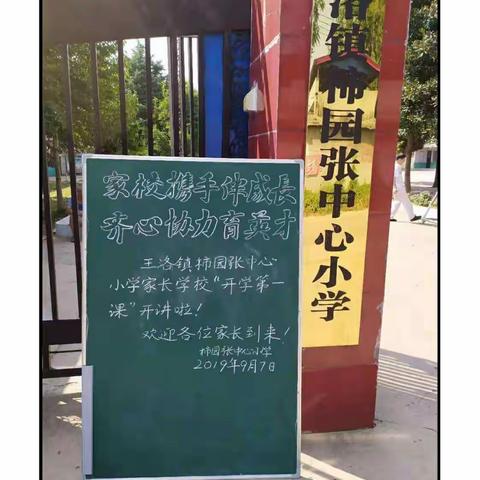 家校携手伴成長
齐心协力育英才
王洛镇柿园张中心
小学家长学校“开学第一
课”开讲啦！
欢迎各位家长到来！
柿园张中心小学
2019年9月7日
洛镇柿园张中心小学